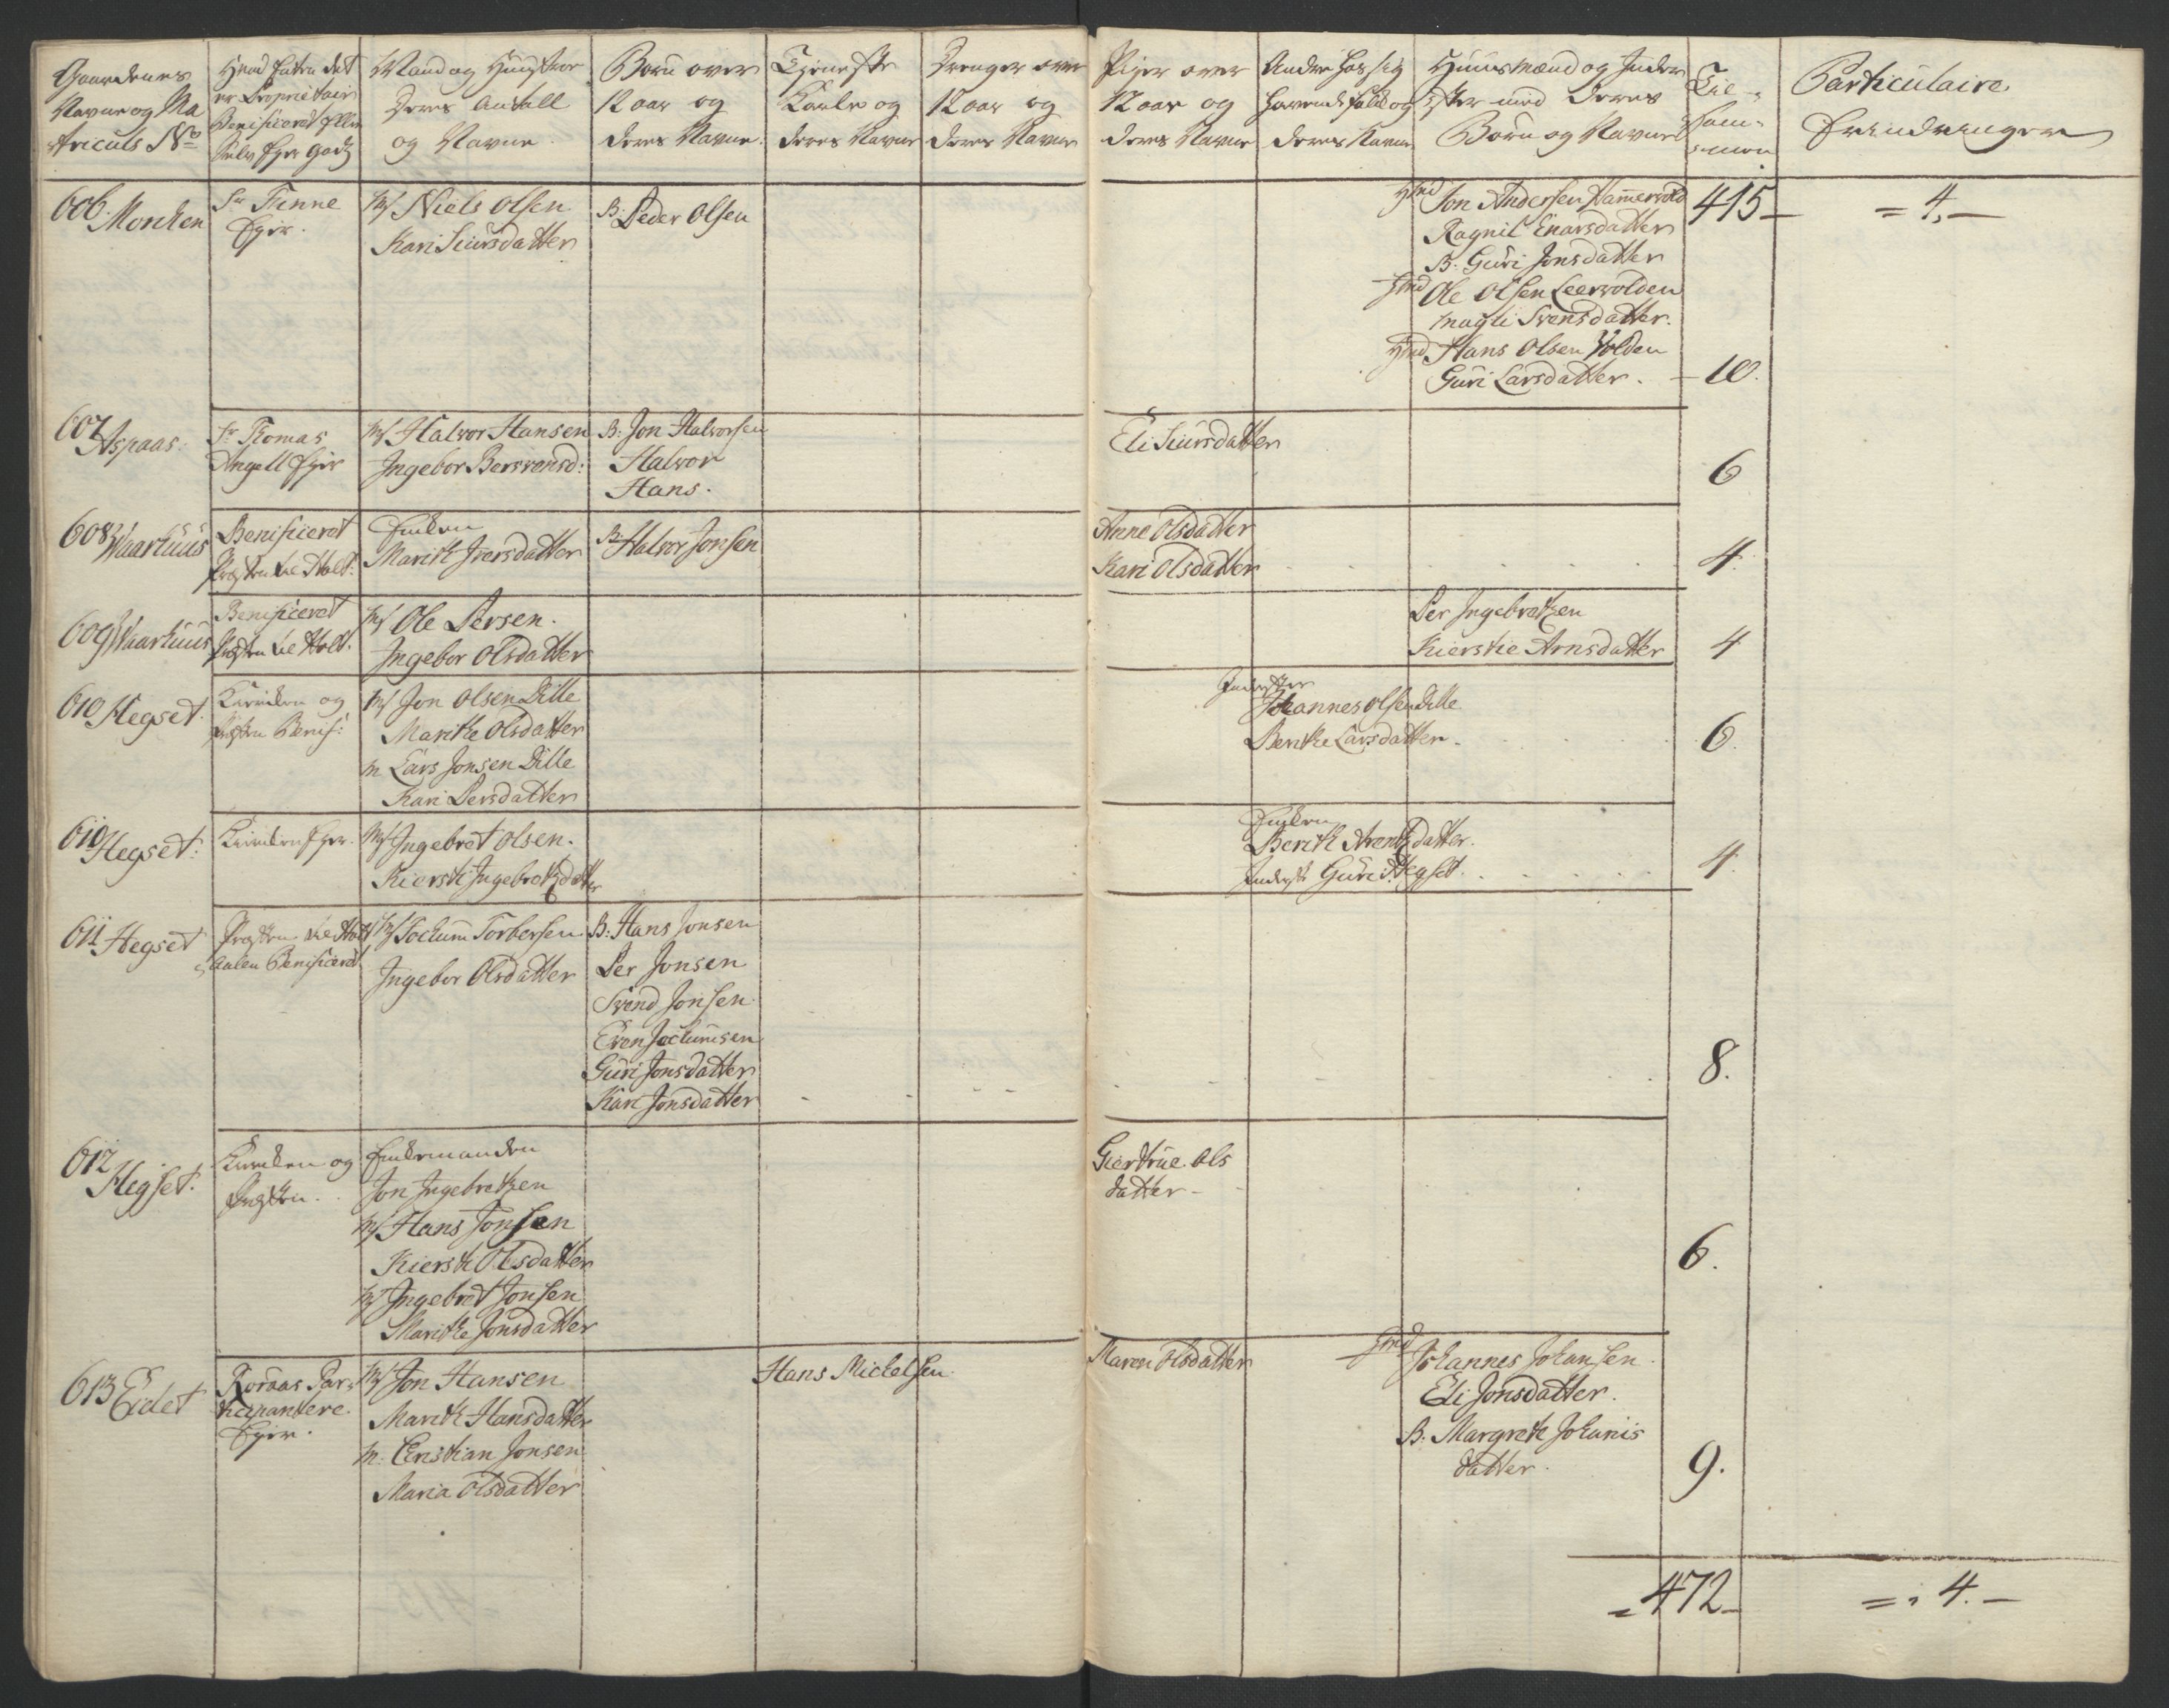 Gaardenes
Navne og Ma
triculs No
Hvad Enten det
er Proprietair
Benificeret Eller
Selv Eyer Godz
Mand og Hustroe
Deres Antall
og Navne
Børn over
12 aar og
deres Navne.
Tieneste
Karle og
deres Navne
Drenger over
12 aar og
deres Navne
Piger over
12 aar og
deres Navne
Andre hos sig
havende Folk og
deres Navne
Huusmænd og Inder
ster med deres
Børn og Navne
Til-
sam-
men
Particulaire
Erindringer
606. Morken
Sr Finne
Eyer.
M/ Niels Olsen
Kari Siursdatter
B. Peder Olsen
Hmd Jon Andersen Hammervold
Ragnil Enarsdatter
B. Guri Jonsdatter
Hmd Ole Olsen Leervolden
Magli Svensdatter.
Hmd Hans Olsen Volden
Guri Larsdatter.
415-
= 4,-
- 10.
607 Aspaas.
Sr Thomas
Angell Eyer
M/ Halvor Hansen
Ingebor Bersvensd:
B. Jon Halvorsen
Halvor
Hans.
Eli Siursdatter
6
608 Waarhuus
Benificeret
Præsten til Holt.
Enken
Marith Iversdatter
B. Halvor Jonsen
Anne Olsdatter
Kari Olsdatter
4.
609 Waarhuus
Benificeret
Præsten til Holt.
M/ Ole Persen.
Ingebor Olsdatter
Per Ingebretzen
Kierstie Arnsdatter
4
610 Hegset.
Kirken og
Præsten Benif:
M/ Jon Olsen Dille
Marithe Olsdatter
M Lars Jonsen Dille
Kari Persdatter
Inderster
Johannes Olsen Dille
Berithe Larsdatter.
6.
610 Hegset.
Kirken Eyer.
M/ Ingebret Olsen.
Kiersti Ingebretzdatter
Enken
Berith Arentzdatter.
Inderste Guri Hegset.
4.
611 Hegset
Præsten til Holt
Aalen Benificeret
M/ Jochum Torbersen
Ingebor Olsdatter
B. Hans Jonsen
Per Jonsen
Svend Jonsen
Even Jochumsen
Guri Jonsdatter
Kari Jonsdatter
8.
612 Hegset.
Kirken og
Præsten.
Enkemanden
Jon Ingebretzen
M/ Hans Jonsen
Kiersti Olsdatter
M/ Ingebret Jonsen
Marithe Jonsdatter
Giertrue Ols
datter
6.
613 Eidet
Røraas Par-
ticipantere
Eyer.
M/ Jon Hansen
Marith Hansdatter
M. Christian Jonsen
Maria Olsdatter
Hans Michelsen
Maren Olsdatter
Hmd Johannes Johansen
Eli Jonsdatter.
B. Margrete Johanis
datter.
9.
= 472-
= , 4. -